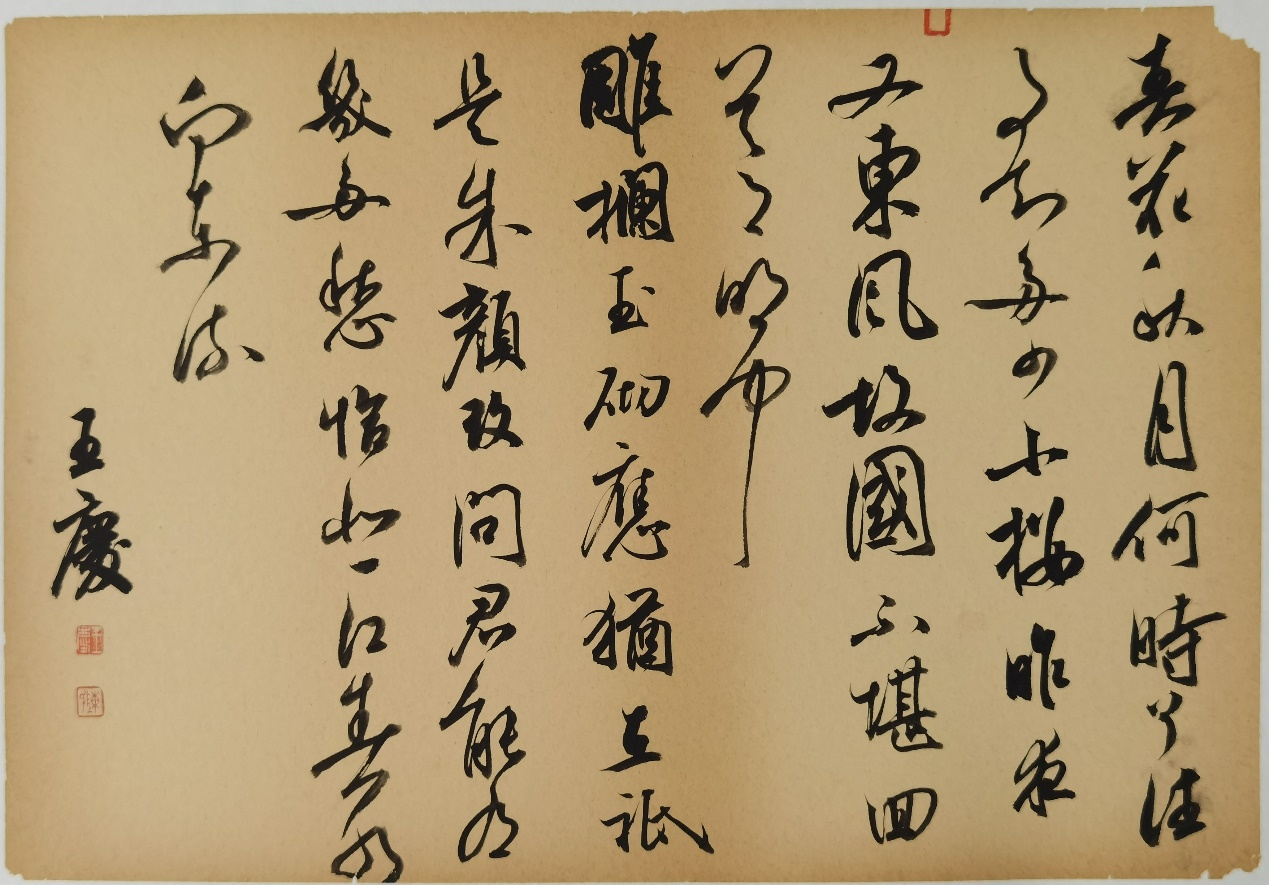 春花秋月何時了往
事知多少小樓昨夜
又東風故國不堪回
首月明中
雕欄玉砌應猶在祇
是朱顏改問君能有
幾多愁恰似一江春水
向東流
王慶